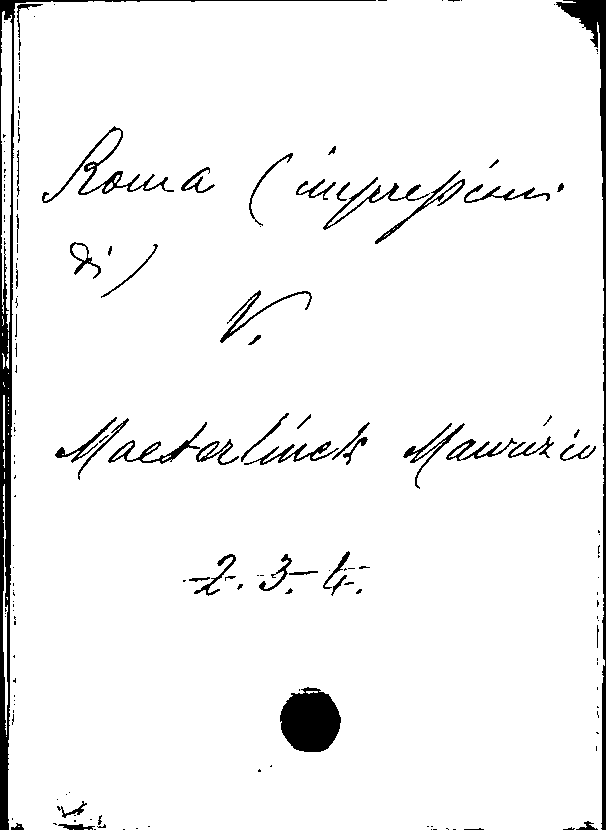 Roma (impressioni
di)
V.
Maeterlinck Maurizio
2. 3. 4.